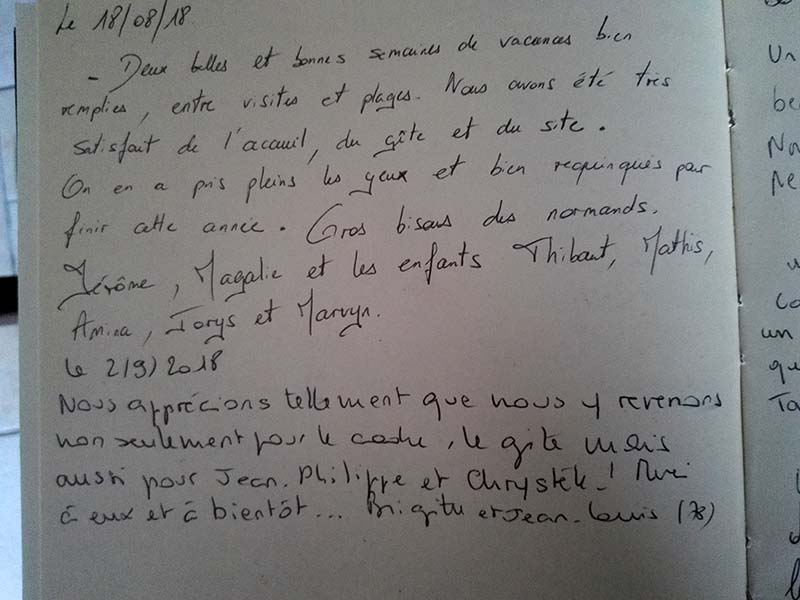 Le 18/08/18
- Deux belles et bonnes semaines de vacances bien
remplies, entre visites et plages. Nous avons été très
satisfait de l'acceuil, du gîte et du site.
On en a pris pleins les yeux et bien requinqués pour
finir cette année. Gros bisous des normands.
Jérôme, Magalie et les enfants Thibaut, Mathis,
Amina, Jorys et Marvyn.
le 2/9/2018
Nous apprécions tellement que nous y revenons
non seulement pour le cadre, le gite mais
aussi pour Jean-Philippe et Chrystèle! Merci
à eux et à bientôt... Brigitte et Jean-Louis (78)
Un
be
No
Ne
Co
un
qu
Ta